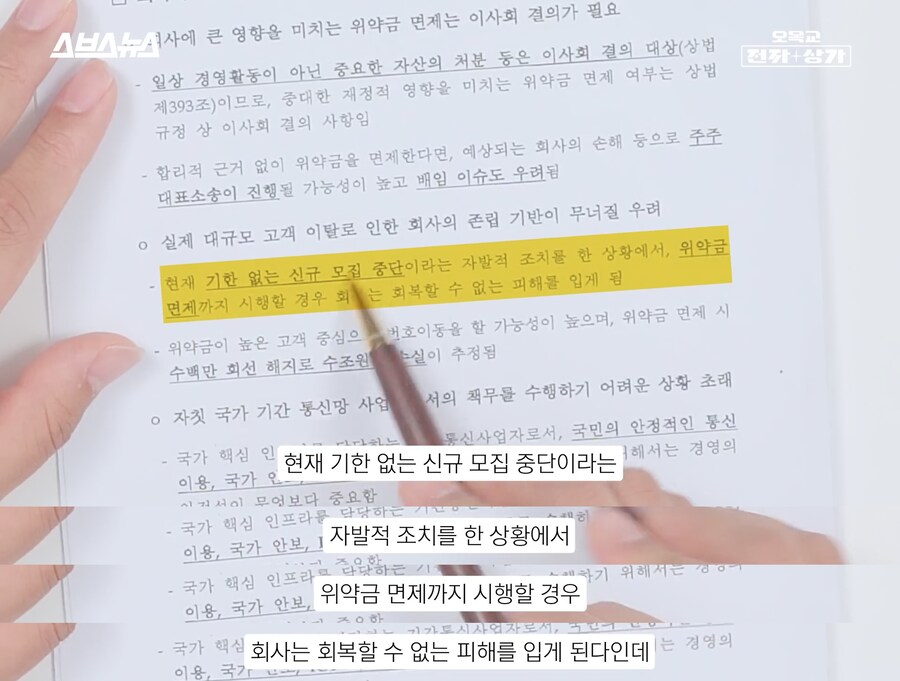 스브스뉴스
오목교
전자+상가
회사에 큰 영향을 미치는 위약금 면제는 이사회 결의가 필요
- 일상 경영활동이 아닌 중요한 자산의 처분 등은 이사회 결의 대상(상법
제393조)이므로, 중대한 재정적 영향을 미치는 위약금 면제 여부는 상법
규정 상 이사회 결의 사항임
- 합리적 근거 없이 위약금을 면제한다면, 예상되는 회사의 손해 등으로 주주
대표소송이 진행될 가능성이 높고 배임 이슈도 우려됨
o 실제 대규모 고객 이탈로 인한 회사의 존립 기반이 무너질 우려
- 현재 기한 없는 신규 모집 중단이라는 자발적 조치를 한 상황에서, 위약금
면제까지 시행할 경우 회 는 회복할 수 없는 피해를 입게 됨
- 위약금이 높은 고객 중심으 번호이동을 할 가능성이 높으며, 위약금 면제 시
수백만 회선 해지로 수조원 손실이 추정됨
o 자칫 국가 기간 통신망 사업 서의 책무를 수행하기 어려운 상황 초래
- 국가 핵심 인 통신사업자로서, 국민의 안정적인 통신
이용, 국가 위해서는 경영의
무엇보다 중요함
현재 기한 없는 신규 모집 중단이라는
- 국가 핵심 인프라를 담당하는
이용, 국가 안보,
자발적 조치를 한 상황에서
- 국가 핵심 인프라를 위해서는 경영의
이용, 국가 안보,
위약금 면제까지 시행할 경우
- 국가 경영의
이용, 국가
회사는 회복할 수 없는 피해를 입게 된다인데